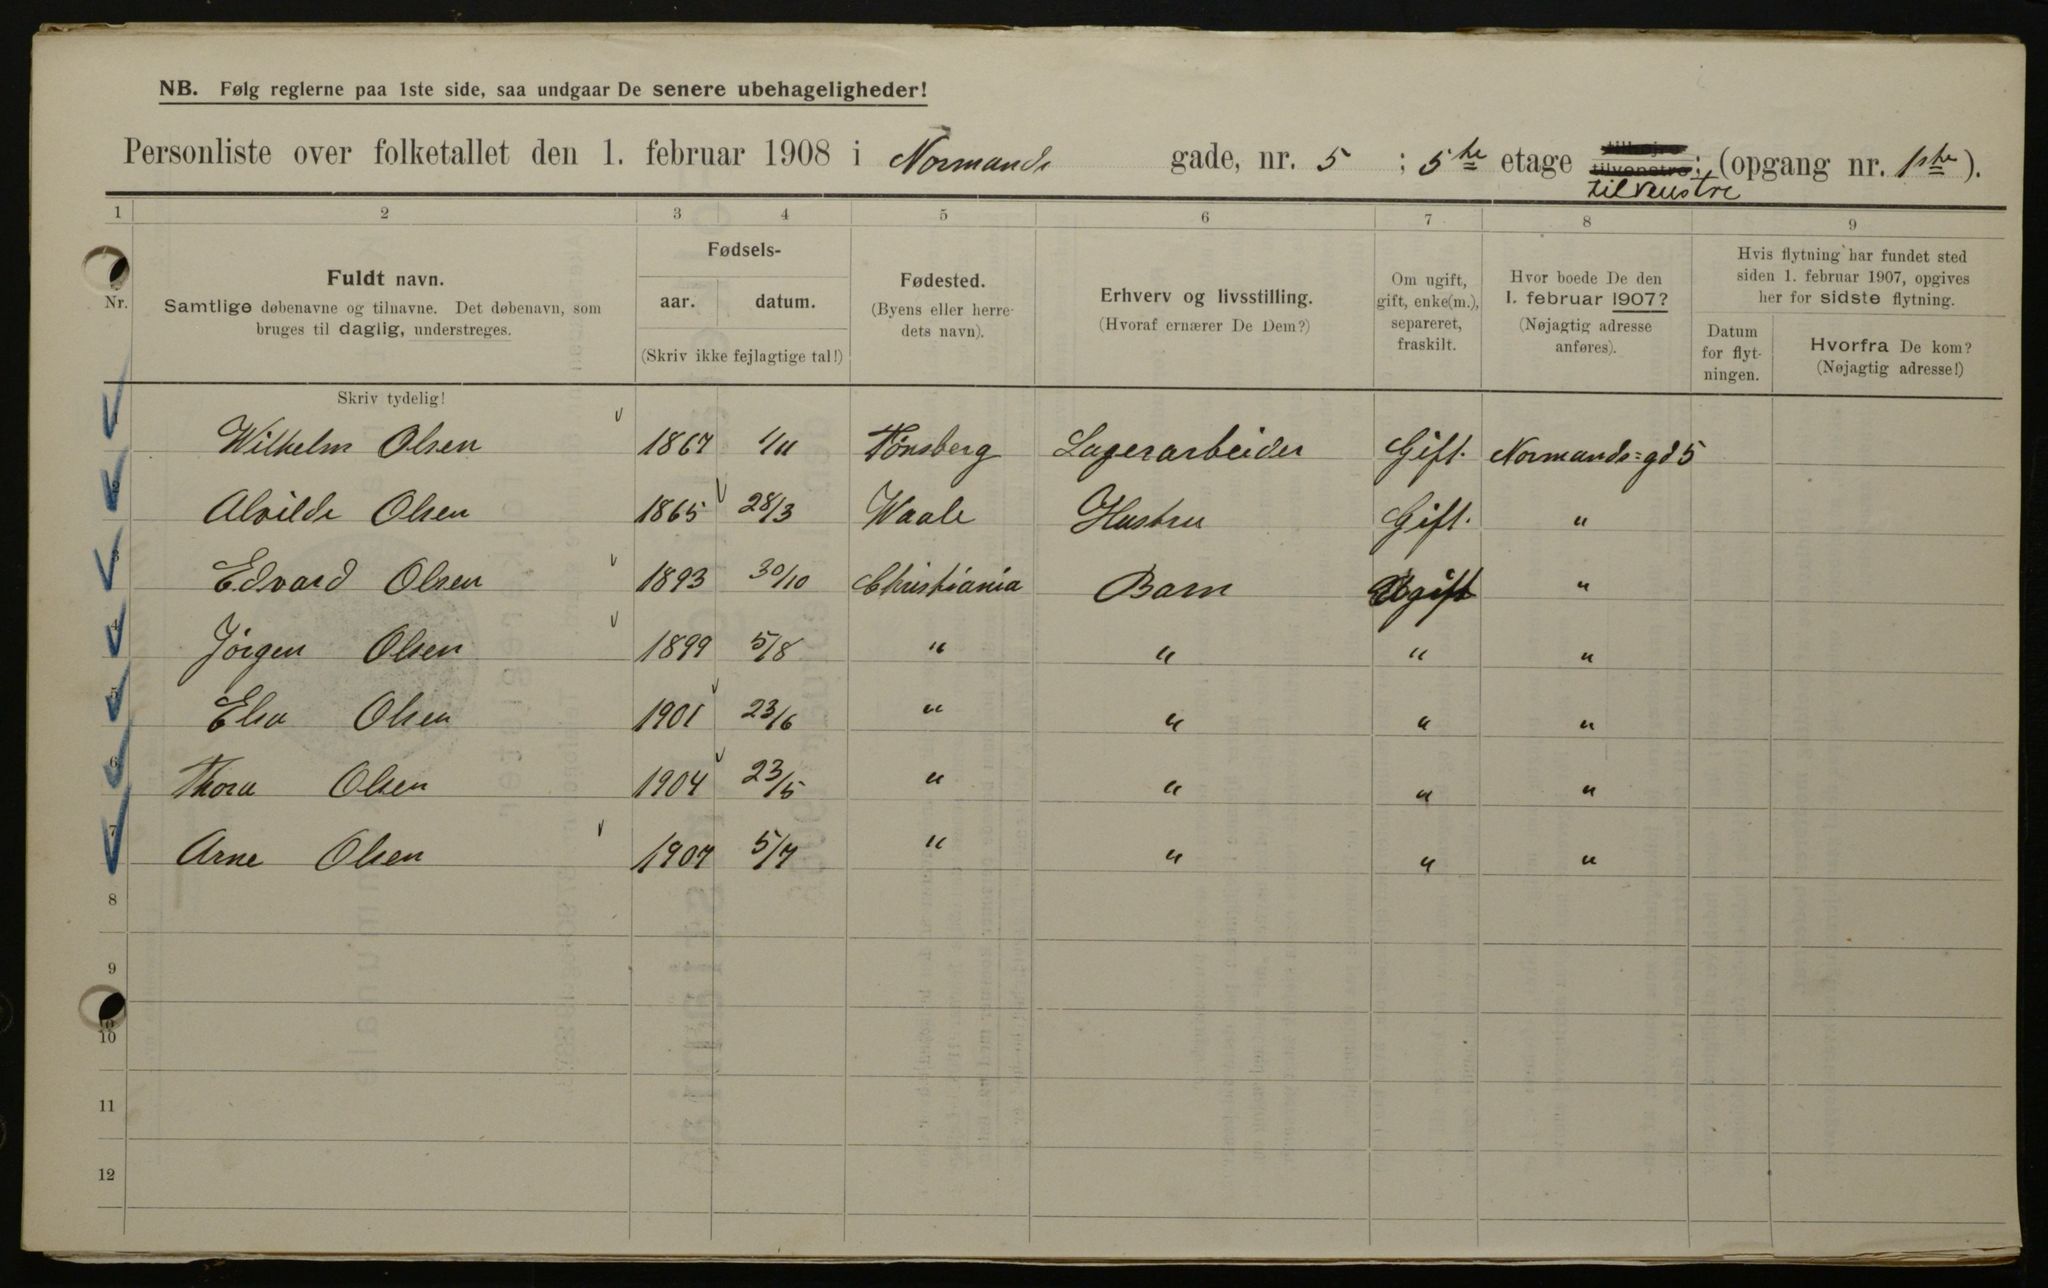 NB. Følg reglerne paa 1ste side, saa undgaar De senere ubehageligheder!
Personliste over folketallet den 1. februar 1908 i Normands gade, nr. 5 ; 5te etage tilhøjre tilvenstre: tilvenstre (opgang nr. 1ste ).
1 2 3 4 5 6 7 8 9
Nr.
Fuldt navn.
Samtlige døbenavne og tilnavne. Det døbenavn, som
bruges til daglig, understreges.
Fødsels-
aar. datum.
(Skriv ikke fejlagtige tal!)
Fødested.
(Byens eller herre-
dets navn).
Erhverv og livsstilling.
(Hvoraf ernærer De Dem?)
Om ugift,
gift, enke(m.),
separeret,
fraskilt.
Hvor boede De den
1. februar 1907?
(Nøjagtig adresse
anføres).
Hvis flytning har fundet sted
siden 1. februar 1907, opgives
her for sidste flytning.
Datum
for flyt-
ningen.
Hvorfra De kom?
(Nøjagtig adresse!)
Skriv tydelig!
Wilhelm Olsen 1867 1/11 Tønsberg Lagerarbeider Gift. Normands=gd 5
2 Alvilde Olsen 1865 28/3 Waale Hustru Gift. "
3 Edvard Olsen 1893 30/10 Christiania Barn Ugift "
4 Jørgen Olsen 1899 5/8 " " " "
5 Elsa Olsen 1901 23/6 " " " "
6 Thora Olsen 1904 23/5 " " " "
7 Arne Olsen 1907 5/7 " " " "
8
9
10
10
11
12